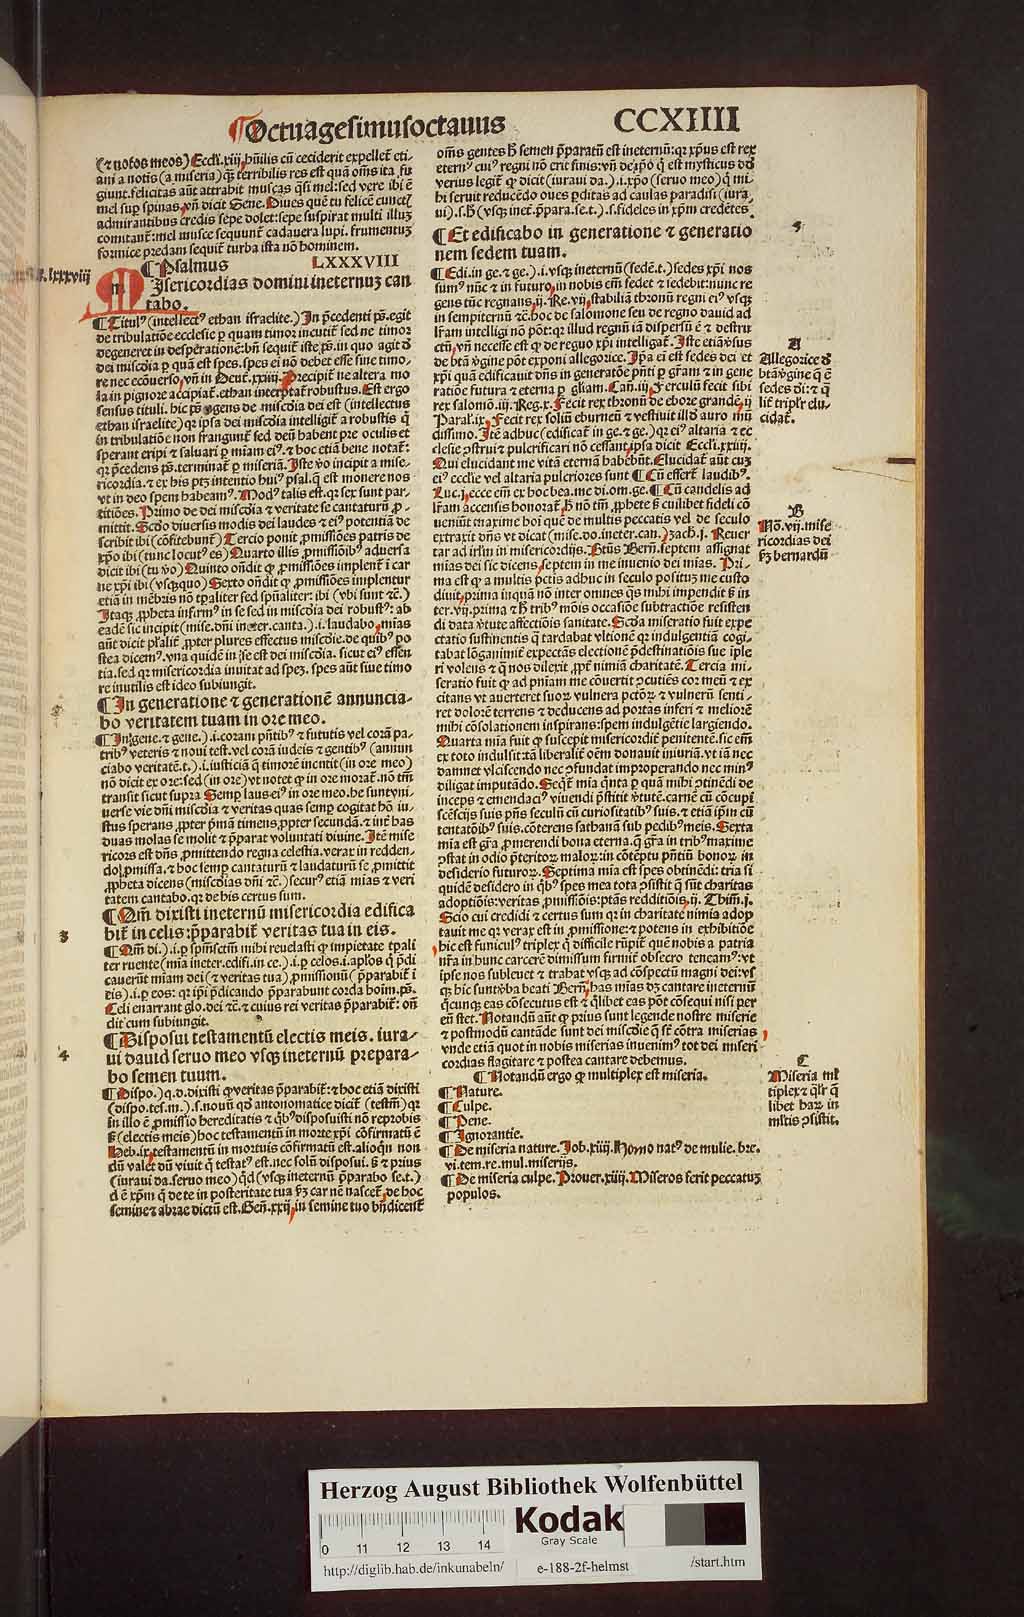 Octuagesimusoctauus CCXIIII
(⁊ notos meos) Eccƚi.xiij. hũilis cũ ceciderit expelleť eti-
ani a notis (a miseria) qꝫ terribilis res est quã oẽs ita fu
giunt. felicitas aũt attrabit muscas qsi mel: sed vere ibi ẽ
mel suꝑ spinas, vñ dicit Sene. Diues què tu felicẽ cunctꝭ
admirantibus credis sepe dolet: sepe suspirat multi illuꝫ
comitanť: mel musce sequunť cadauera lupi. frumentuꝫ
formice predam sequiť turba ista nõ hominem.
¶ Psalmus LXXXVIII
Misericordias domini ineternuꝫ can
tabo.
¶ Titulꝰ (intellectꝰ ethan israelite.) In p̃cedenti pš. egit
de tribulatiõe ecclesie ꝑ quam timor incutiť sed ne timor
degeneret in desperatione: bñ sequiť iste pš. in quo agit ď
dei misc̃dia ꝑ quã est spes. spes ei nõ debet esse sine timo-
re nec ecõuerso, vñ in Deuť.xxiiij. Precipiť ne altera mo
la in pignore accipiať. ethan interptať robustus. Est ergo
sensus tituli. hic pš agens de misc̃dia dei est (intellectus
ethan israelite) qꝛ ipsa dei misc̃dia intelligiť a robustis q̃
in tribulatiõe non frangunť sed deũ habent pre oculis et
sperant eripi ⁊ saluari ꝑ miam eiꝰ. ⁊ hoc etiã bene notať:
qꝛ p̃cedens pš. terminať ꝑ miseriã. Iste ṽo incipit a mise-
ricordia. ⁊ ex his ptꝫ intentio huiꝰ psal. q̃ est monere nos
vt in deo spem habeamꝰ. Modꝰ talis est. qꝛ sex sunt par-
titiões. Primo de dei misc̃dia ⁊ veritate se cantaturũ ꝓ-
mittit. Scďo diuersis modis dei laudes ⁊ eiꝰ potentiã de
scribit ibi (cõfitebunť) Tercio ponit ꝓmissiões patris de
xp̃o ibi (tunc locutꝰ es) Quarto illis ꝓmissiõibꝰ aduersa
dicit ibi (tu ṽo) Quinto oñdit ꝙ ꝓmissiões implenť ĩ car
ne xp̃i ibi (vsqꝫquo) Sexto oñdit ꝙ ꝓmissiões implentur
etiã in mẽbris nõ tꝑaliter sed spũaliter: ibi (vbi sunt ⁊c̃.)
Itaqꝫ ꝓpheta infirmꝰ in se sed in misc̃dia dei robustꝰ: ab
eadẽ sic incipit (mise. dñi ineter. canta.) .i. laudabo, mias
aũt dicit pƚaliť, ꝓpter plures effectus misc̃die. de quibꝰ po
stea dicemꝰ. vna quidẽ in se est dei misc̃dia. sicut eiꝰ essen
tia. sed qꝛ misericordia inuitat ad speꝫ. spes aũt siue timo
re inutilis est ideo subiungit.
¶ In generatione ⁊ generationẽ annuncia-
bo veritatem tuam in ore meo.
¶ In (gene. ⁊ gene.) .i. coram pñtibꝰ ⁊ fututis vel corã pa-
tribꝰ veteris ⁊ noui test. vel corã iudeis ⁊ gentibꝰ (annun
ciabo veritatẽ. t.) .i. iusticiã q̃ timorẽ incutit (in ore meo)
nõ dicit ex ore: sed (in ore) vt noteť ꝙ in ore morať. nõ tm̃
transit sicut supra Semꝑ laus eiꝰ in ore meo. he sunt vni-
uerse vie dñi misc̃dia ⁊ veritas quas semꝑ cogitat hõ iu-
stus sperans, ꝓpter pmã timens, ꝓpter secundã. ⁊ inť has
duas molas se molit ⁊ p̃parat voluntati diuine. Itẽ mise
ricors est dñs, ꝓmittendo regna celestia. verax in redden-
do, ꝓmissa. ⁊ hoc semꝑ cantaturũ ⁊ laudaturũ se, ꝓmittit
,ꝓpheta dicens (misc̃dias dñi ⁊c̃.) securꝰ etiã mias ⁊ veri
tatem cantabo. qꝛ de his certus sum.
¶ Qm̃ dixisti ineternũ misericordia edifica
biť in celis: p̃parabiť veritas tua in eis.
¶ Qm̃ di.) .i. ꝑ spm̃sctm̃ mihi reuelasti ꝙ impietate tꝑali
ter ruente (mia ineter. edifi. in ce.) .i. ꝑ celos .i. aplos q̃ p̃di
cauerũt miam dei (⁊ veritas tua), ꝓmissionũ (p̃parabiť ĩ
eis) .i. ꝑ eos: qꝛ ipi p̃dicando p̃parabunt corda hoim. pš.
Celi enarrant glo. dei ⁊c̃. ⁊ cuius rei veritas p̃parabiť: oñ
dit cum subiungit.
¶ Disposui testamentũ electis meis. iura-
ui dauid seruo meo vsqꝫ ineternũ prepara-
bo semen tuum.
¶ Dispo.) q. d. dixisti ꝙ veritas p̃parabiť: ⁊ hoc etiã dixisti
(dispo. tes. m.) .s. nouũ qď antonomatice diciť (testm̃) qꝛ
in illo ẽ ꝓmissio hereditatis ⁊ qbꝰ disposuisti nõ reprobis
ß (electis meis) hoc testamentũ in morte xp̃i cõfirmatũ ẽ
Heb.ix, testamentũ in mortuis cõfirmatũ est. alioqn non
dũ valet dũ viuit q̃ testatꝰ est. nec solũ disposui. ß ⁊ prius
(iuraui da. seruo meo) qď (vsqꝫ ineternũ p̃parabo se. t.)
d ẽ xp̃m q̃ de te in posteritate tua fꝫ car nẽ nasceť, de hoc
semine ⁊ abrae dictũ est. Geñ.xxij, in semine tuo bñdicenť
om̃s gentes ꝧ semen p̃paratũ est ineternũ: qꝛ xp̃us est rex
eternꝰ cuiꝰ regni nõ erit finis: vñ de xp̃o q̃ est mysticus dď
verius legiť ꝙ dicit (iuraui da.) .i. xp̃o (seruo meo) q̃ mi-
hi seruit reducẽdo oues ꝑditas ad caulas paradisi (iura
ui) .s. ꝧ (vsqꝫ ineť. p̃para. se. t.) .s. fideles in xp̃m credẽtes
¶ Et edificabo in generatione ⁊ generatio
nem sedem tuam.
¶ Edi. in ge. ⁊ ge.) .i. vsqꝫ ineternũ (sedẽ. t.) sedes xp̃i nos
sumꝰ nũc ⁊ in futuro, in nobis em̃ sedet ⁊ sedebit: nunc re
gens tũc regnans, ij. Re. vij, stabiliã thronũ regni eiꝰ vsqꝫ
in sempiternũ ⁊c̃. hoc de salomone seu de regno dauid ad
lr̃am intelligi nõ põt: qꝛ illud regnũ iã dispersũ ẽ ⁊ destru
ctũ, vñ necesse est ꝙ de reguo xp̃i intelligať. Iste etiã ṽsus
de btã ṽgine põt exponi allegorice. Ipa ei est sedes dei et
xp̃i quã edificauit dñs in generatõe pñti ꝑ gr̃am ⁊ in gene
ratiõe futura ⁊ eterna ꝑ gliam. Cañ.iij, Ferculũ fecit sibi
rex salomõ. iij. Reg.x. Fecit rex thronũ de ebore grandẽ, ij
Paral.ix, Fecit rex soliũ eburneũ ⁊ vestiuit illď auro mũ
dissimo. Itẽ adhuc (edificať in ge. ⁊ ge.) qꝛ eiꝰ altaria ⁊ ec
clesie ꝯstrui ⁊ pulcrificari nõ cessant, ipsa dicit Eccƚi.xxiiij.
Qui elucidant me vitã eternã habebũt. Elucidať aũt cuꝫ
eiꝰ ecclie vel altaria pulcriores sunt ¶ Cũ efferť laudibꝰ.
Luc.j, ecce em̃ ex hoc bea. me di. om. ge. ¶ Cũ candelis ad
lr̃am accensis honorať, ꝧ nõ tm̃, ꝓphete ß cuilibet fideli cõ
ueniũt maxime hoi quẽ de multis peccatis vel de seculo
extraxit dñs vt dicat (mise. do. ineter. can.) zach.j. Reuer
tar ad irlm̃ in misericordijs. Btũs Berñ. septem assignat
mias dei sic dicens, septem in me inuenio dei mias. Pri-
ma est ꝙ a multis pctis adhuc in seculo posituꝫ me custo
diuit, prima inquã nõ inter omnes q̃s mihi impendit ß in
ter. vij. prima ⁊ ꝧ tribꝰ mõis occasiõe subtractiõe resisten
di data ṽtute affectiõis sanitate. Scďa miseratio fuit expe
ctatio sustinentis q̃ tardabat vltionẽ qꝛ indulgentiã cogi-
tabat lõganimiť expectãs electionẽ p̃destinatiõis sue iple
ri volens ⁊ q̃ nos dilexit, ꝓpť nimiã charitatẽ. Tercia mi-
seratio fuit ꝙ ad pniam me cõuertit ꝯcutiẽs cor meũ ⁊ ex
citans vt auerteret suoꝝ vulnera pctoꝝ ⁊ vulnerũ senti-
ret dolorẽ terrens ⁊ deducens ad portas inferi ⁊ meliorẽ
mihi cõsolationem inspirans: spem indulgẽtie largiendo.
Quarta mia fuit ꝙ suscepit misericordiť penitentẽ. sic em̃
ex toto indulsit: tã liberaliť oẽm donauit iniuriã. vt iã nec
damnet vlciscendo nec ꝯfundat improperando nec minꝰ
diligat imputãdo. Seqť mia q̃nta ꝑ quã mihi ꝯtinẽdi de
inceps ⁊ emendaciꝰ viuendi p̃stitit ṽtutẽ. carnẽ cũ cõcupi
scẽtijs suis pñs seculũ cũ curiositatibꝰ suis. ⁊ etiã ipm̃ cũ
tentatõibꝰ suis. cõterens sathanã sub pedibꝰ meis. Sexta
mia est gr̃a ꝓmerendi bona eterna. q̃ gr̃a in tribꝰ maxime
ꝯstat in odio p̃teritoꝝ maloꝝ: in cõteptu pñtiũ bonoꝝ in
desiderio futuroꝝ. Septima mia est spes obtinẽdi: tria si
quidẽ desidero in qbꝰ spes mea tota ꝯsistit q̃ sũt charitas
adoptiõis: veritas, ꝓmissiõis: ptãs redditiõis, ij. Thim̃.j.
Scio cui credidi ⁊ certus sum qꝛ in charitate nimia adop
tauit me qꝛ verax est in ꝓmissione: ⁊ potens in exhibitiõe
hic est funiculꝰ triplex q̃ difficile rũpiť quẽ nobis a patria
nr̃a in hunc carcerẽ dimissum firmiť obsecro teneamꝰ: vt
ipse nos subleuet ⁊ trahat vsqꝫ ad cõspectũ magni dei: vs
qꝫ hic sunt ṽba beati Berñ, has mias dꝫ cantare ineternũ
q̃cunqꝫ eas cõsecutus est ⁊ q̃libet eas põt cõsequi nisi per
eũ stet. Notandũ aũt ꝙ prius sunt legende nostre miserie
⁊ postmodũ cantãde sunt dei misc̃die q̃ sť cõtra miserias
vnde etiã quot in nobis miserias inuenimꝰ tot dei miseri
cordias flagitare ⁊ postea cantare debemus.
¶ Notandũ ergo ꝙ multiplex est miseria.
¶ Nature.
¶ Culpe.
¶ Pene.
¶ Ignorantie.
¶ De miseria nature. Iob.xiiij. Homo natꝰ de mulie. bre.
vi. tem. re. mul. miserijs.
¶ De miseria culpe. Prouer.xiiij. Miseros ferit peccatuꝫ
populos.
lxxxviij
3
4
A
Allegorice ď
btã ṽgine q̃ ẽ
sedes di: ⁊ q̃
liť tripƚr elu-
cidať.
B
Nõ. vij. mise
ricordias dei
fꝫ bernardũ
C
Miseria mƚ
tiplex ⁊ qlr̃ q̃
libet haꝝ in
mƚtis ꝯsistit.
Herzog August Bibliothek Wolfenbüttel
0 11 12 13 14
Kodak
Gray Scale
http://diglib.hab.de/inkunabeln/ e-188-2f-helmst /start.htm